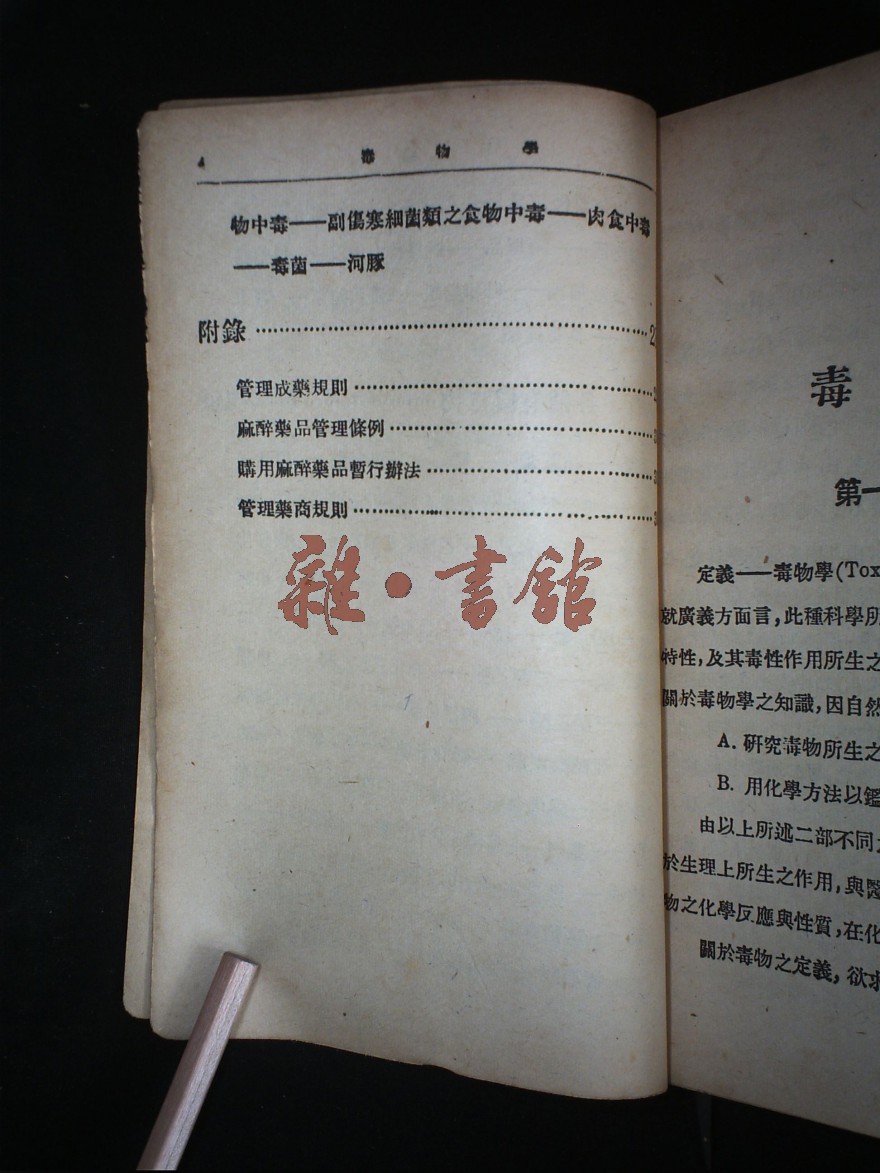 4 毒物學
物中毒——副傷寒細菌類之食物中毒——肉食中毒
——毒菌——河豚
附錄
管理成藥規則
麻醉藥品管理條例
購用麻醉藥品暫行辦法
管理藥商規則
雜·書館
毒
第一
定義——毒物學(Tox
就廣義方面言,此種科學所
特性,及其毒性作用所生之
關於毒物學之知識,因自然
A. 研究毒物所生之
B. 用化學方法以鑑
由以上所述二部不同
於生理上所生之作用,與醫
物之化學反應與性質,在化
關於毒物之定義,欲求